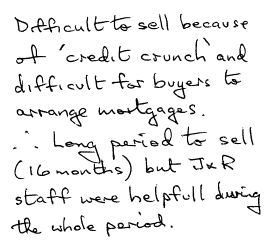 Difficult to sell because
of 'credit crunch' and
difficult for buyers to
arrange mortgages.
∴ Long period to sell
(16 months) but J&R
staff were helpfull during
the whole period.